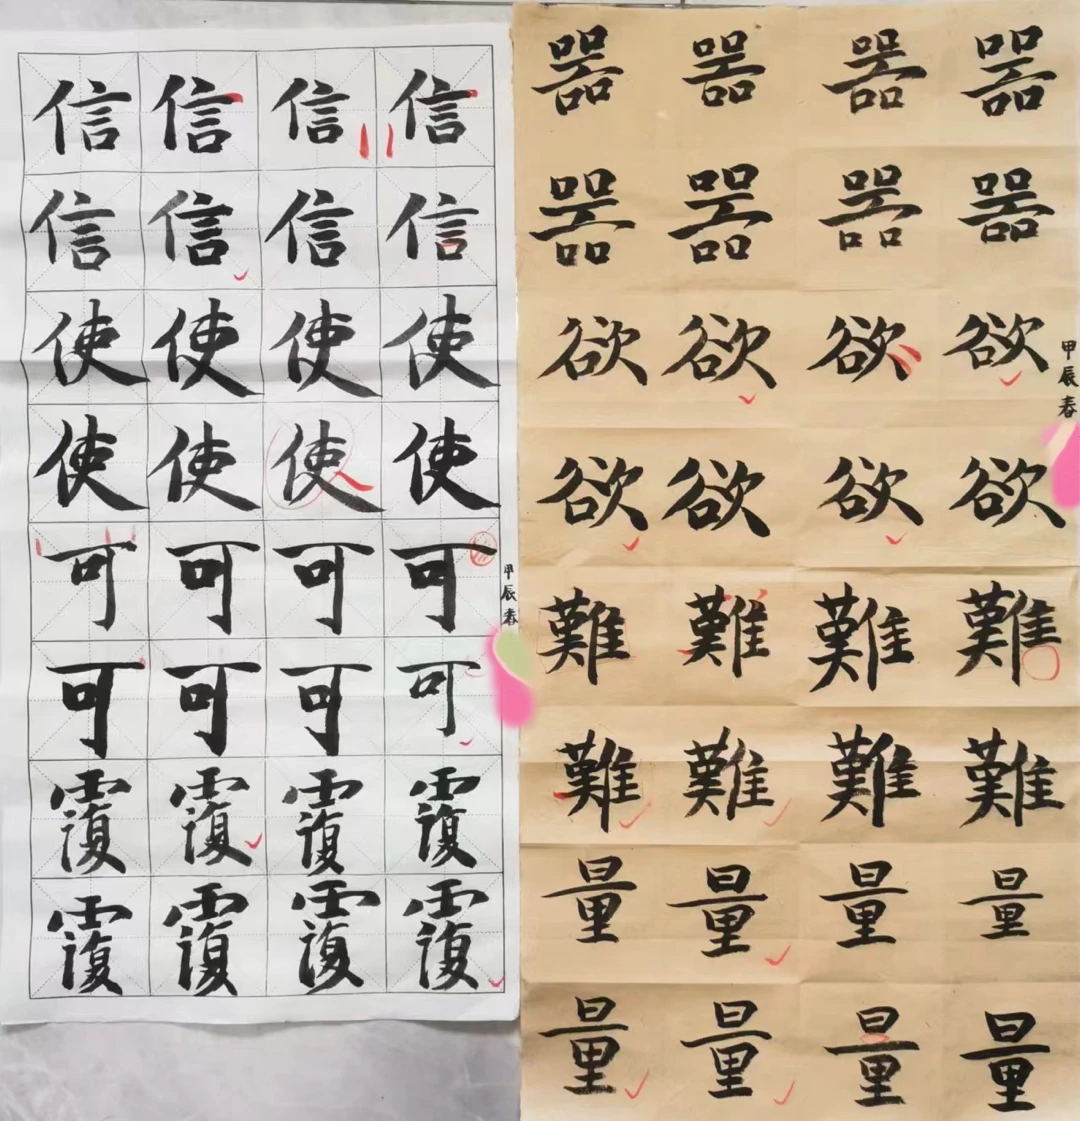 信信信信
信信信信
使使使使
使使使使
可可可可
可可可可
覆覆覆覆
覆覆覆覆
甲辰春
器器器器
器器器器
欲欲欲欲
欲欲欲欲
難難難難
難難難難
量量量量
量量量量
甲辰春